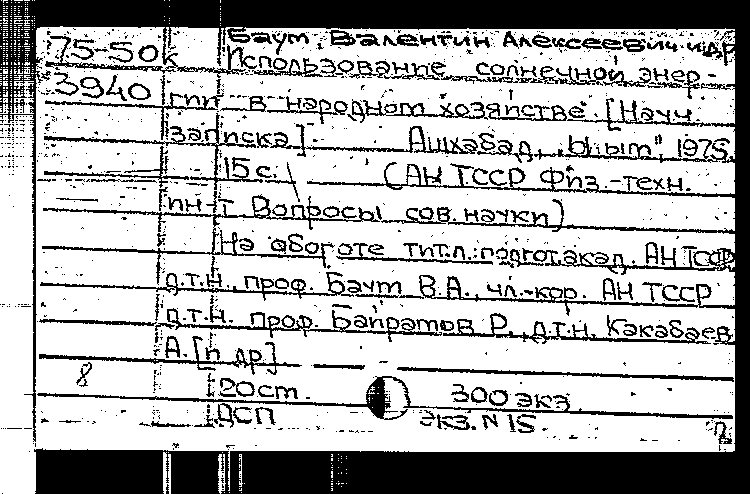 75-50к Баум, Валентин Алексеевич и др
Использование солнечной энер-
3940 гии в народном хозяйстве. [Науч.
записка]. Ашхабад, "Ылым", 1975.
15 с. (АН ТССР Физ.-техн.
ин-т Вопросы сов. науки)
На обороте тит.л.: подгот. акад. АН ТССР
д.т.н., проф. Баум В.А., чл.-кор. АН ТССР
д.т.н. проф. Байрамов Р., д.т.н. Какабаев
А. [и др].
8 20 ст. 300 экз.
ДСП экз. N 15.